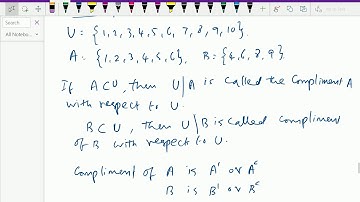 Search
All Notebo..
U = {1,2,3,4,5,6,7,8,9,10}.
A = {1,2,3,4,5,6}, B = {4,6,8,9}
If A⊂U, then U|A is called the Compliment A
with respect to U.
B⊂U, then U|B is called compliment
of B with respect to U.
Compliment of A is A' or Aᶜ
B is B' or Bᶜ